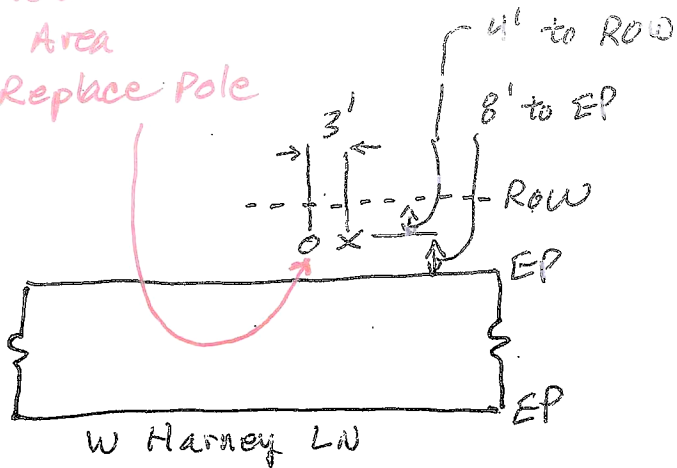 Area
Replace Pole
4' to ROW
8' to EP
3'
ROW
O X
EP
EP
W Harney LN